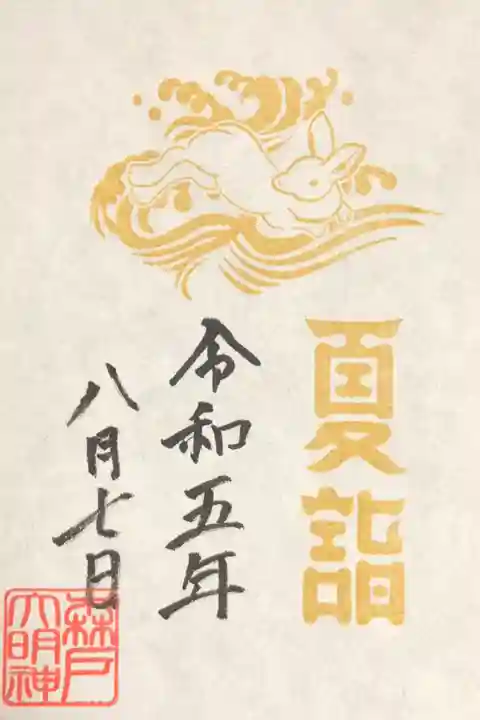 夏詣
令和五年
八月七日
森戸
大明神